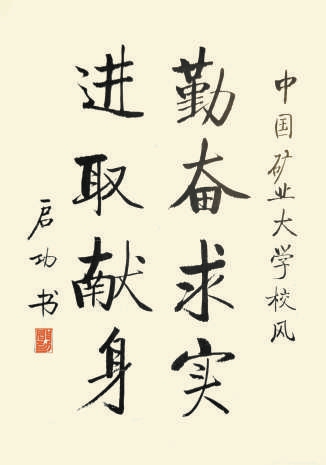 中国矿业大学校风
勤奋求实
进取献身
启功书